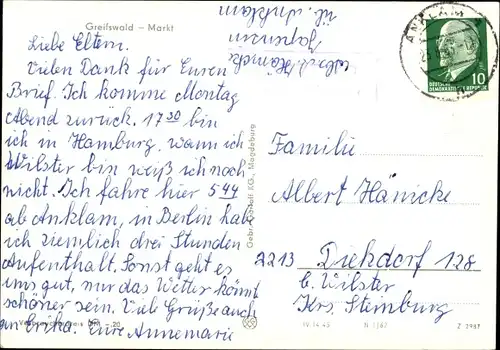 Greifswald – Markt
ü. Anklam
Liebe Eltern.
Vielen Dank für Euren
Brief. Ich komme Montag
Abend zurück. 17 30 bin
ich in Hamburg, wann ich
Wilster bin weiß ich noch
nicht. Ich fahre hier 5 44
ab Anklam, in Berlin habe
ich ziemlich drei Stunden
Aufenthalt. Sonst geht es
uns gut, nur das Wetter könnt
schöner sein. Viel Grüße auch
an Erika. Eure Annemarie
ANKLAM
10
DEUTSCHE
DEMOKRATISCHE REPUBLIK
Gebr. Garloff KG., Magdeburg
Familie
Albert Hänicke
2213 Diekdorf 128
b. Wilster
Krs. Steinburg
IV-14-45 N 1/67 Z 2987